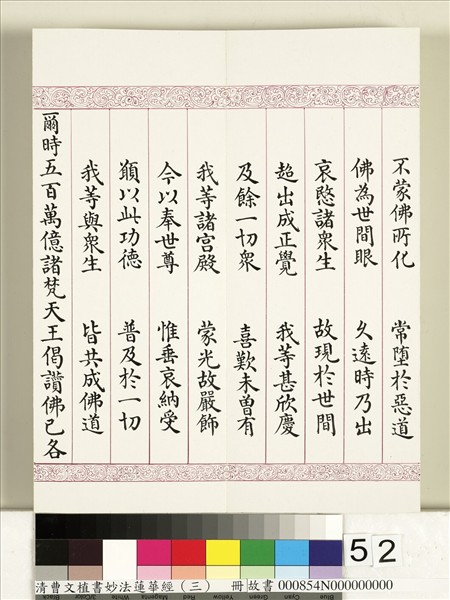 不蒙佛所化　常墮於惡道
佛為世間眼　久遠時乃出
哀愍諸衆生　故現於世間
超出成正覺　我等甚欣慶
及餘一切衆　喜歎未曾有
我等諸宮殿　蒙光故嚴飾
今以奉世尊　惟垂哀納受
願以此功德　普及於一切
我等與衆生　皆共成佛道
爾時五百萬億諸梵天王偈讚佛已各
52
清曹文植書妙法蓮華經（三）　冊故書 000854N000000000